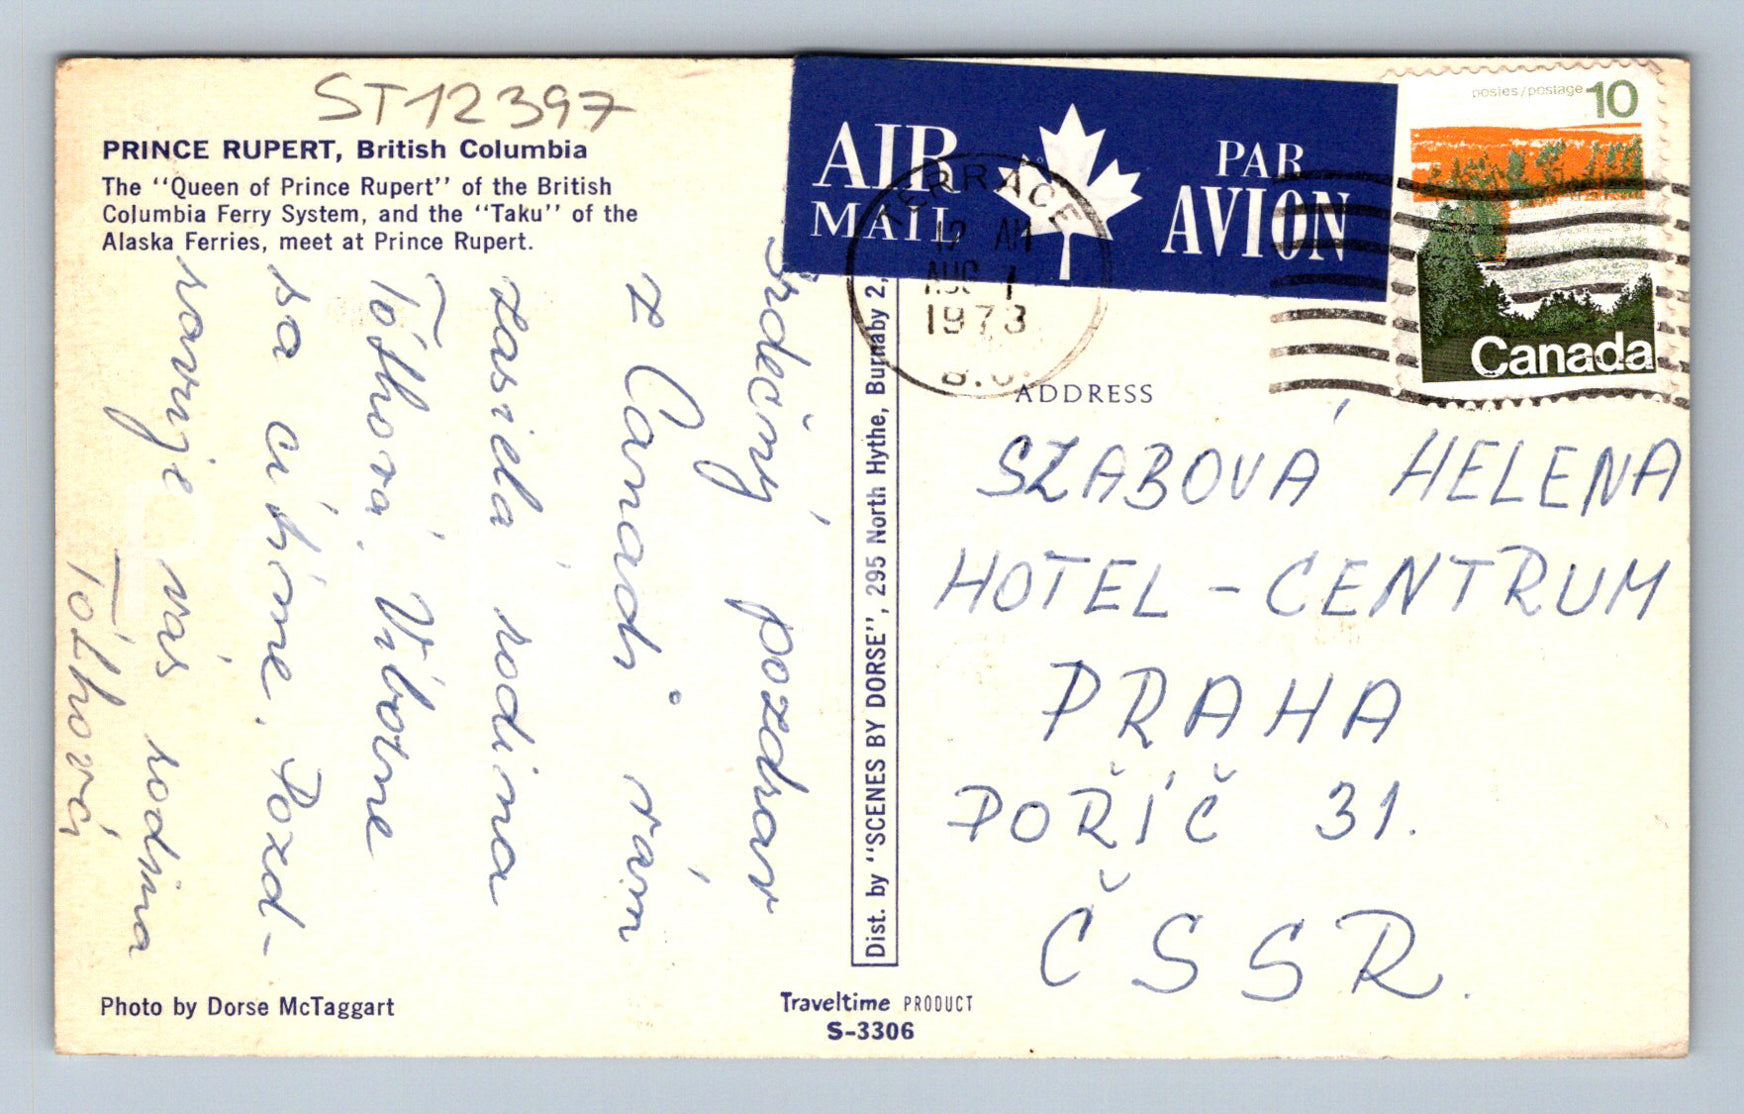 ST12397
PRINCE RUPERT, British Columbia
The "Queen of Prince Rupert" of the British
Columbia Ferry System, and the "Taku" of the
Alaska Ferries, meet at Prince Rupert.
Srdečný pozdrav
z Canady vám
zasiela rodina
Tóthová. Výborne
sa cítime. Pozd-
ravuje vás rodina
Tóthová
Photo by Dorse McTaggart
Dist. by "SCENES BY DORSE", 295 North Hythe, Burnaby 2,
Traveltime PRODUCT
S-3306
AIR
MAIL
PAR
AVION
TERRACE
AM
AUG 1
1973
B.C.
postes/postage 10
Canada
ADDRESS
SZABOVÁ HELENA
HOTEL-CENTRUM
PRAHA
POŘÍČ 31.
ČSSR.